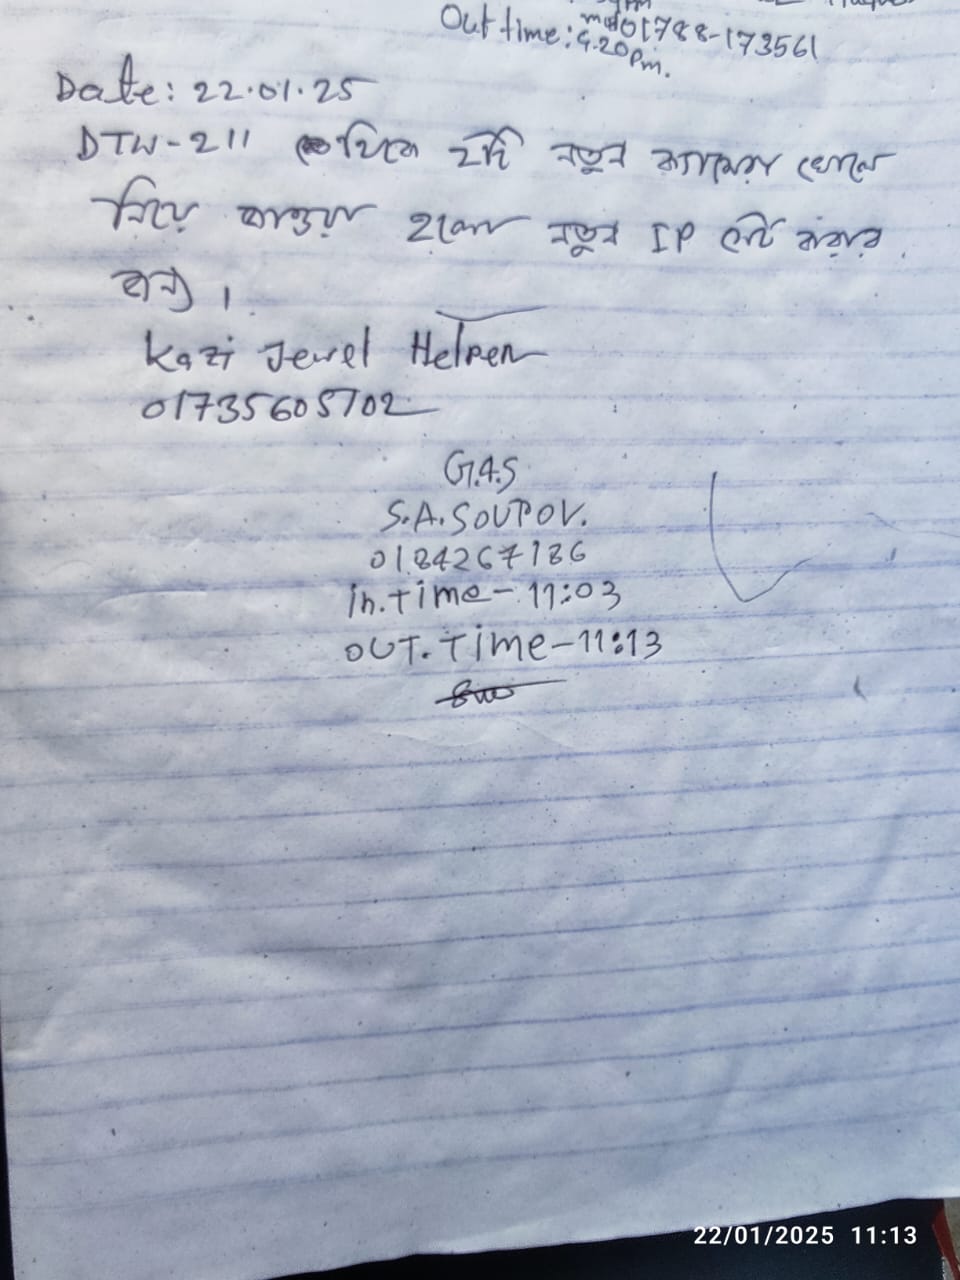 Out time: 01788-173561
4.20pm.
Date: 22.01.25
DTW-211 থেকে যদি নতুন ক্যামেরা খোলে
নিয়ে যাওয়া হলে নতুন IP করার
জন্য।
Kazi Jewel Helper
01735605702
G.A.S
S.A.SOUPOV.
0184267186
in.time-11:03
OUT.Time-11:13
22/01/2025 11:13